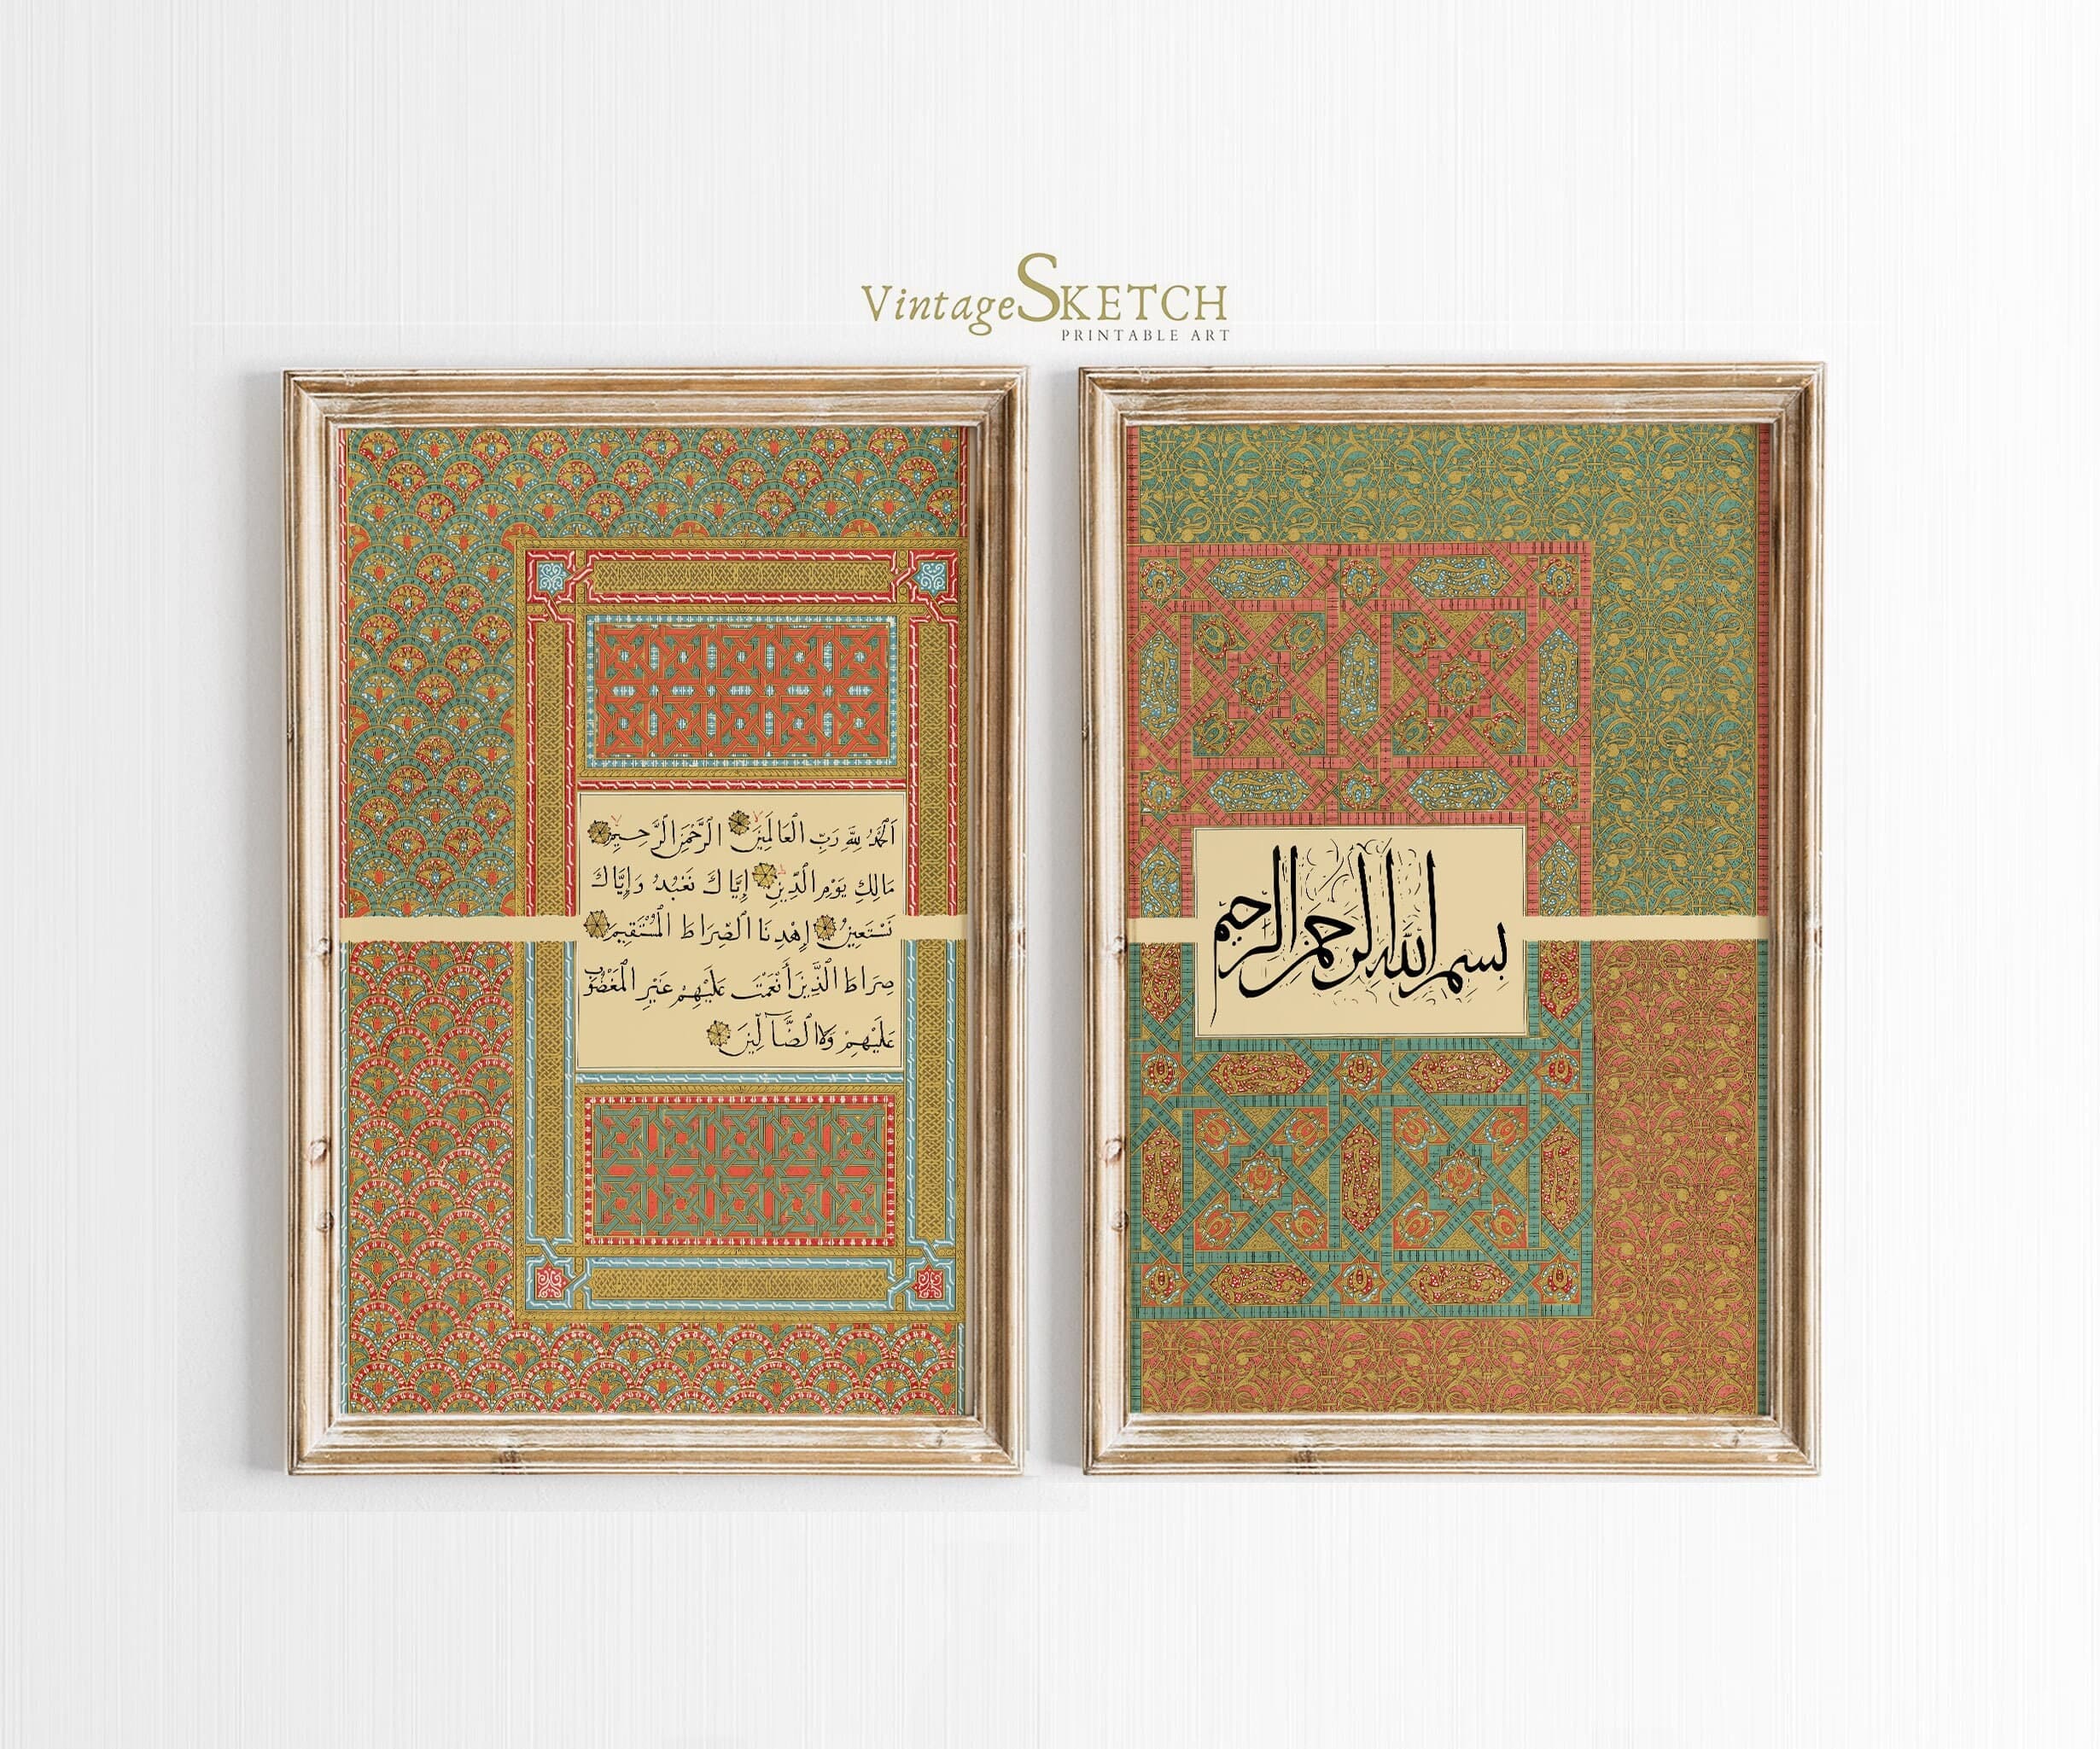 VintageSKETCH
PRINTABLE ART
اَلْحَمْدُ لِلَّهِ رَبِّ الْعَالَمِينَ الرَّحْمَنِ الرَّحِيمِ
مَالِكِ يَوْمِ الدِّينِ إِيَّاكَ نَعْبُدُ وَإِيَّاكَ
نَسْتَعِينُ إِهْدِنَا الصِّرَاطَ الْمُسْتَقِيمَ
صِرَاطَ الَّذِينَ أَنْعَمْتَ عَلَيْهِمْ غَيْرِ الْمَغْضُوبِ
عَلَيْهِمْ وَلَا الضَّآلِّينَ
بسم الله الرحمن الرحيم